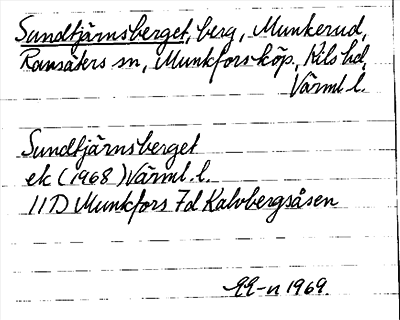 Sundtjärnsberget, berg, Munkerud,
Ransäters sn, Munkfors köp, Kils hd,
Värml. l.
Sundtjärnsberget
ek (1968) Värml. l.
11D Munkfors 7d Kalvbergsåsen
1969.